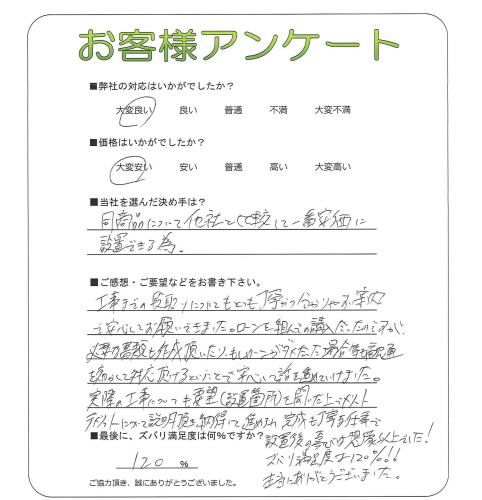 お客様アンケート
■弊社の対応はいかがでしたか？
大変良い 良い 普通 不満 大変不満
■価格はいかがでしたか？
大変安い 安い 普通 高い 大変高い
■当社を選んだ決め手は？
同商品について他社と比較して一番安価に
設置できる為。
■ご感想・ご要望などをお書き下さい。
工事までの段取りについてもとても丁寧かつ分かりやすい案内
で安心してお願いできました。ローンを組んでの購入だったのですが、
必要書類も作成頂いたり、もしローンがダメだった場合等も
を対応頂けるということで安心して話を進めていけました。
実際の工事についても要望(設置箇所)を聞いた上でメリット
デメリットについて説明頂き納得して進められ 完成も丁寧な仕事で
設置後の喜びは想像以上でした！
■最後に、ズバリ満足度は何％ですか？
ズバリ満足度は120%!!
120 %
本当にありがとうございました。
ご協力頂き、誠にありがとうございました。